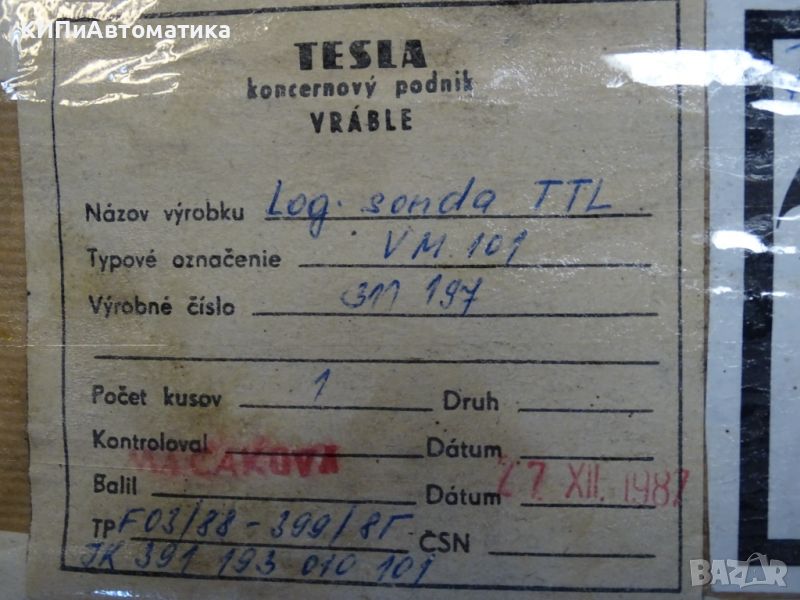 КИПиАвтоматика
TESLA
koncernový podnik
VRÁBLE
Názov výrobku Log. sonda TTL
Typové označenie VM 101
Výrobné číslo 311 197
Počet kusov 1 Druh
Kontroloval Dátum
MAČÁKOVÁ
Balil Dátum 17 XII. 1987
TP F03/88-399/8Г ČSN
JK 391 193 010 101
BAZAR